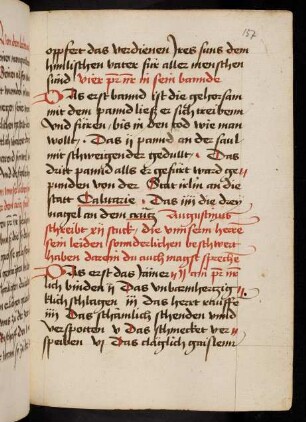 157
opfert das verdienen Jres suns dem
himlischen vater für aller menschen
sund vier pr̄ n̄r in sein bannde
Das erst bannd ist die gehorsam
mit dem pannd ließ er sich treibenn
vnd füren / bis in den tod wie man
wollt · Das ij pannd an der saul
mit schweigender gedullt · Das
dritt pannd alls Er gefürt ward ge-
punden von der Stat in an die
statt Caluarie · Das iiij die drey
nagel an dem creutz Augustinus
schreibt xij stuck / die vnnserm herrn
sein leiden sonnderlichen beschwert
haben darein du auch magst sprechen
Das erst das Jamer= ij ain pr̄ n̄r
lich binden ij Das vnbarmhertzig
klich schlagen iij das herrt rauffen
iiij Das schämlich sthenden vnnd
verspotten v Das schmecket ver=
speiben vj Das cläglich gaisleinn